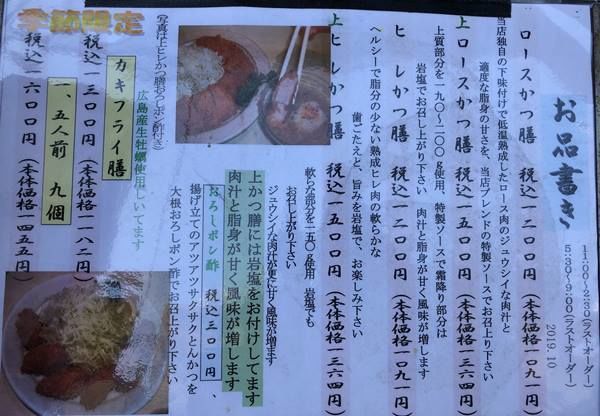 お品書き
11:00~2:30(ラストオーダー)
5:30~9:00(ラストオーダー)
2019.10
ロースかつ膳 税込一二〇〇円(本体価格一〇九一円)
当店独自の下味付けで低温熟成したロース肉のジュウシイな肉汁と
適度な脂身の甘さを、当店ブレンドの特製ソースでお召上り下さい
上ロースかつ膳 税込一五〇〇円(本体価格一三六四円)
上質部分を一九〇~二〇〇g使用、特製ソースで霜降り部分は
岩塩でお召上がり下さい 肉汁と脂身が甘く風味が増します
ヒレかつ膳 税込一二〇〇円(本体価格一〇九一円)
ヘルシーで脂分の少ない熟成ヒレ肉の軟らかな
歯ごたえと、旨みを岩塩で、お楽しみ下さい
上ヒレかつ膳 税込一五〇〇円(本体価格一三六四円)
軟らか部分を一五〇g使用 岩塩でも
お召上がり下さい
ジュウシイな肉汁が更に甘く風味が増ます
上かつ膳には岩塩をお付けしてます
肉汁と脂身が甘く風味が増します
おろしポン酢 税込三〇〇円、
揚げ立てのアツアツサクサクとんかつを
大根おろしポン酢でお召上がり下さい
写真は上ヒレかつ膳おろしポン酢付き)
季節限定
広島産生牡蠣使用しいてます
カキフライ膳
税込一三〇〇円(本体価格一一八二円)
一、五人前 九個
税込一六〇〇円(本体価格一四五五円)